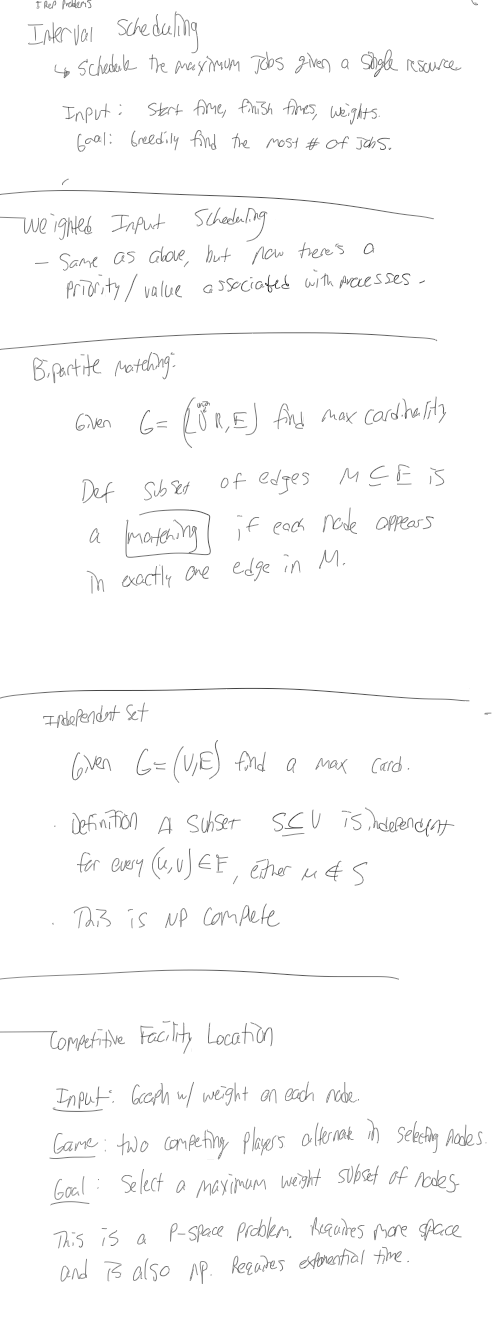 5 Rep Problems
Interval Scheduling
↳ Schedule the maximum jobs given a single resource
Input: Start time, finish times, weights.
Goal: Greedily find the most # of jobs.
Weighted Input Scheduling
- Same as above, but now there's a
priority/value associated with processes -
Bipartite Matching:
Given G= (L U R, E) find max cardinality
Def subset of edges M ⊆ E is
a matching if each node appears
in exactly one edge in M.
Independent Set
Given G=(V,E) find a max card.
. Definition A subset S⊆V is independent
for every (u,v)∈E, either u ∉ S
. This is NP complete
Competitive Facility Location
Input: Graph w/ weight on each node.
Game: two competing players alternate in selecting nodes.
Goal: Select a maximum weight subset of nodes.
This is a P-space problem. Requires more space
and is also NP. Requires exponential time.